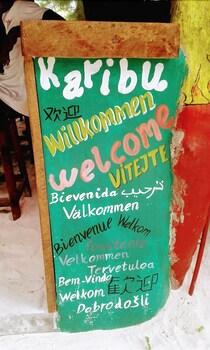 Karibu
欢迎
Willkommen
welcome
VÍTEJTE
Bievenida ترحيب
Välkommen
Bienvenue Welkom
Velkommen
Tervetuloa
Bem-Vindo 歡迎
Welkom
Dobrodošli